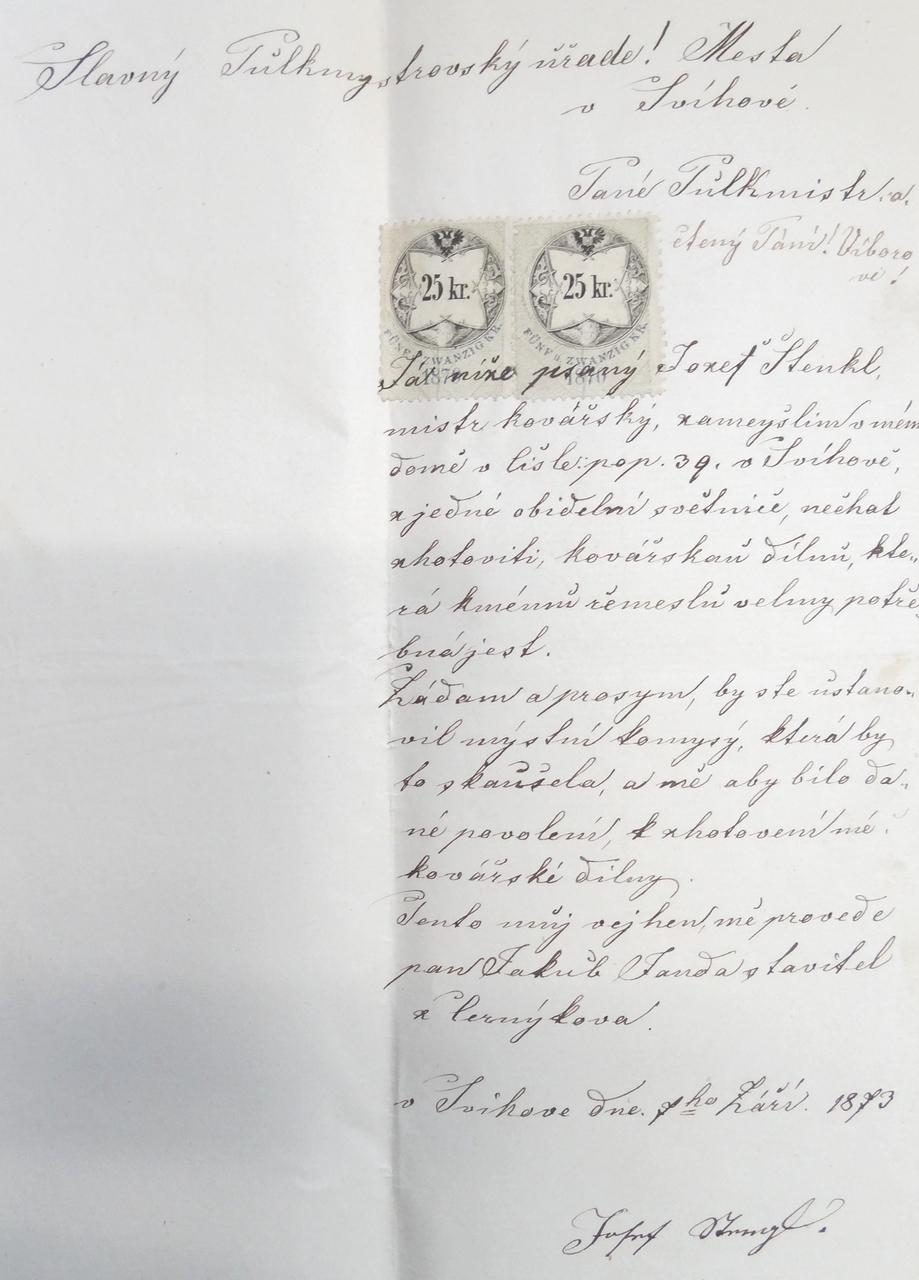 Slavný Půlkmystrovský úřade! Mesta
v Svíhové.
Pané Půlkmistr. a.
ctený Páni! Víboro
vé!
25 kr. 25 kr.
FÜNF u. ZWANZIG KR. FÜNF u. ZWANZIG KR.
1870 1870
Já níže psaný Jozef Štenkl,
mistr kovářský, zameyšlim v mém
domě v čísle: pop. 39. v Svíhově,
z jedné obidelní světnice, nechat
zhotoviti, kovářskau dílnu, kte„
rá kmému řemeslu velmy potře„
bná jest.
Žádam a prosym, by ste ustano„
vil mýstní komysý, která by
to skaušela, a mě aby bilo da„
né povolení, k zhotovení mé
kovářské dílny.
Tento můj vejhen, mě provede
pan Jakub Janda stavitel
z Černýkova.
v Svihove dne. 7ho Září. 1873
Josef Stengl.